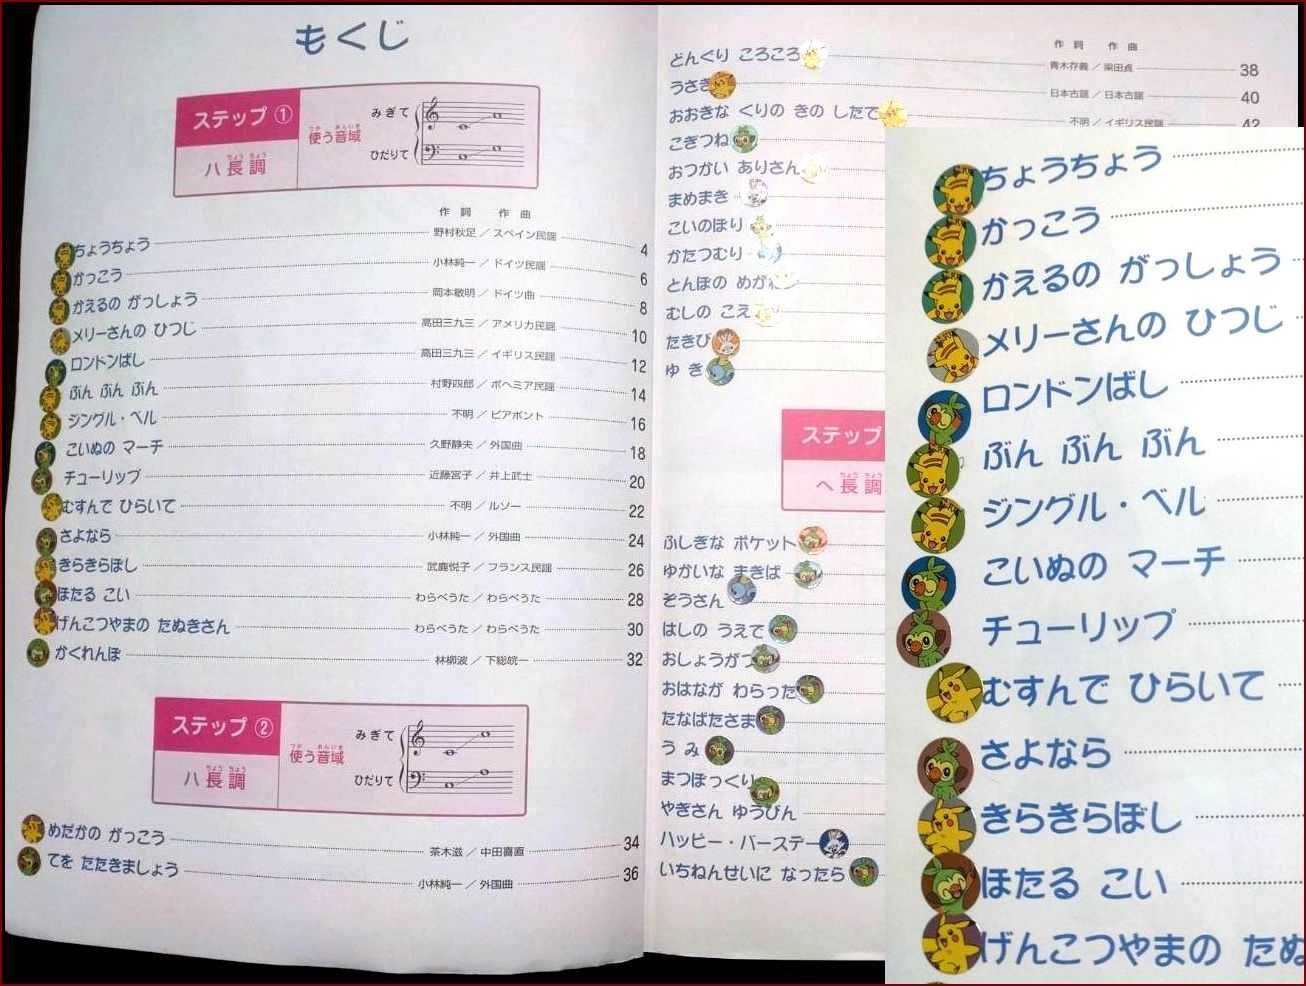 もくじ
ステップ ①
ハ長調
ちょう ちょう
使う音域
つか おんいき
みぎて
ひだりて
作 詞 作 曲
ちょうちょう 野村秋足／スペイン民謡 4
かっこう 小林純一／ドイツ民謡 6
かえるの がっしょう 岡本敏明／ドイツ曲 8
メリーさんの ひつじ 高田三九三／アメリカ民謡 10
ロンドンばし 高田三九三／イギリス民謡 12
ぶん ぶん ぶん 村野四郎／ボヘミア民謡 14
ジングル・ベル 不明／ピアポント 16
こいぬの マーチ 久野静夫／外国曲 18
チューリップ 近藤宮子／井上武士 20
むすんで ひらいて 不明／ルソー 22
さよなら 小林純一／外国曲 24
きらきらぼし 武鹿悦子／フランス民謡 26
ほたる こい わらべうた／わらべうた 28
げんこつやまの たぬきさん わらべうた／わらべうた 30
かくれんぼ 林柳波／下総皖一 32
ステップ ②
ハ長調
ちょう ちょう
使う音域
つか おんいき
みぎて
ひだりて
めだかの がっこう 茶木滋／中田喜直 34
てを たたきましょう 小林純一／外国曲 36
作 詞 作 曲
どんぐり ころころ 青木存義／梁田貞 38
うさぎ 日本古謡／日本古謡 40
おおきな くりの きの したで 不明／イギリス民謡 42
こぎつね
おつかい ありさん
まめまき
こいのぼり
かたつむり
とんぼの めがね
むしの こえ
たきび
ゆき
ステップ
ヘ長調
ちょう ちょう
ふしぎな ポケット
ゆかいな まきば
ぞうさん
はしの うえで
おしょうがつ
おはなが わらった
たなばたさま
うみ
まつぼっくり
やぎさん ゆうびん
ハッピー・バースデー
いちねんせいに なったら
ちょうちょう
かっこう
かえるの がっしょう
メリーさんの ひつじ
ロンドンばし
ぶん ぶん ぶん
ジングル・ベル
こいぬの マーチ
チューリップ
むすんで ひらいて
さよなら
きらきらぼし
ほたる こい
げんこつやまの たぬ